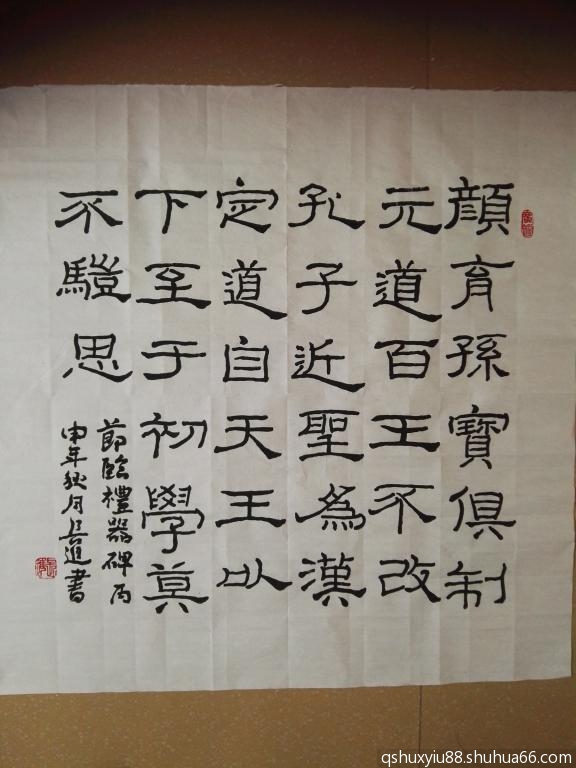 顏育孫寶俱制
元道百王不改
孔子近聖為漢
定道自天王以
下至于初學莫
不驥思
節臨禮器碑丙
申年秋月長進書
qshuxyiu88.shuhua66.com